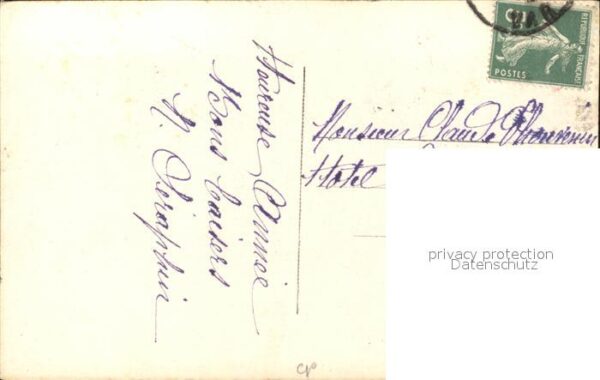 Heureuse Année
Bons baisers
N. Séraphin
Monsieur Claude
Hotel
REPUBLIQUE FRANÇAISE
POSTES
privacy protection
Datenschutz
CP